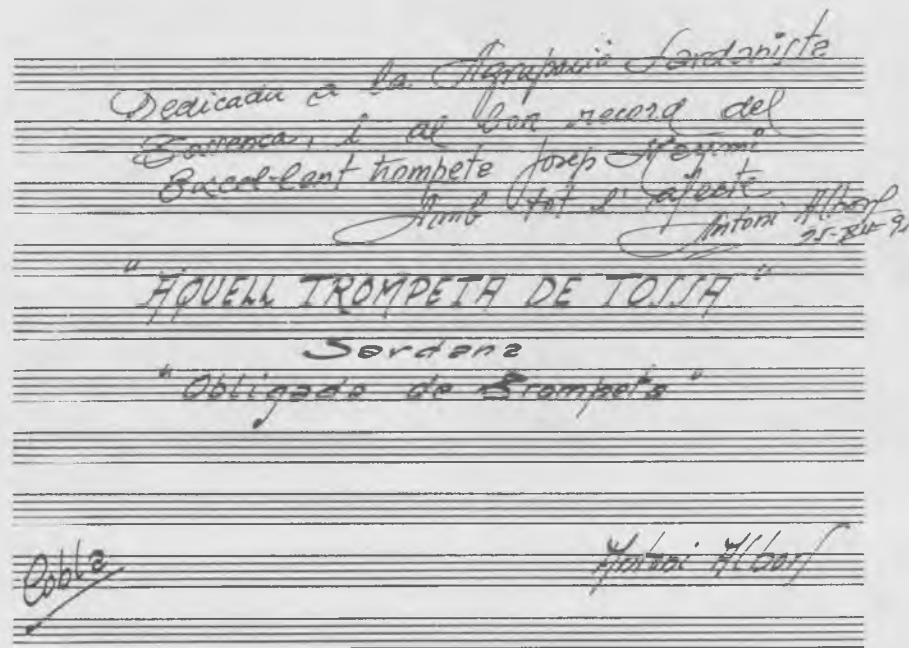 Dedicada a la Agrupació Sardanista
Barrenca, i al bon record del
Excel-lent trompeta Josep Maximí
Amb tot l'afecte
Antoni Albors
25-XII-91
"AQUELL TROMPETA DE TOSSA"
Sardana
"Obligada de Trompeta"
Cobla
Antoni Albors